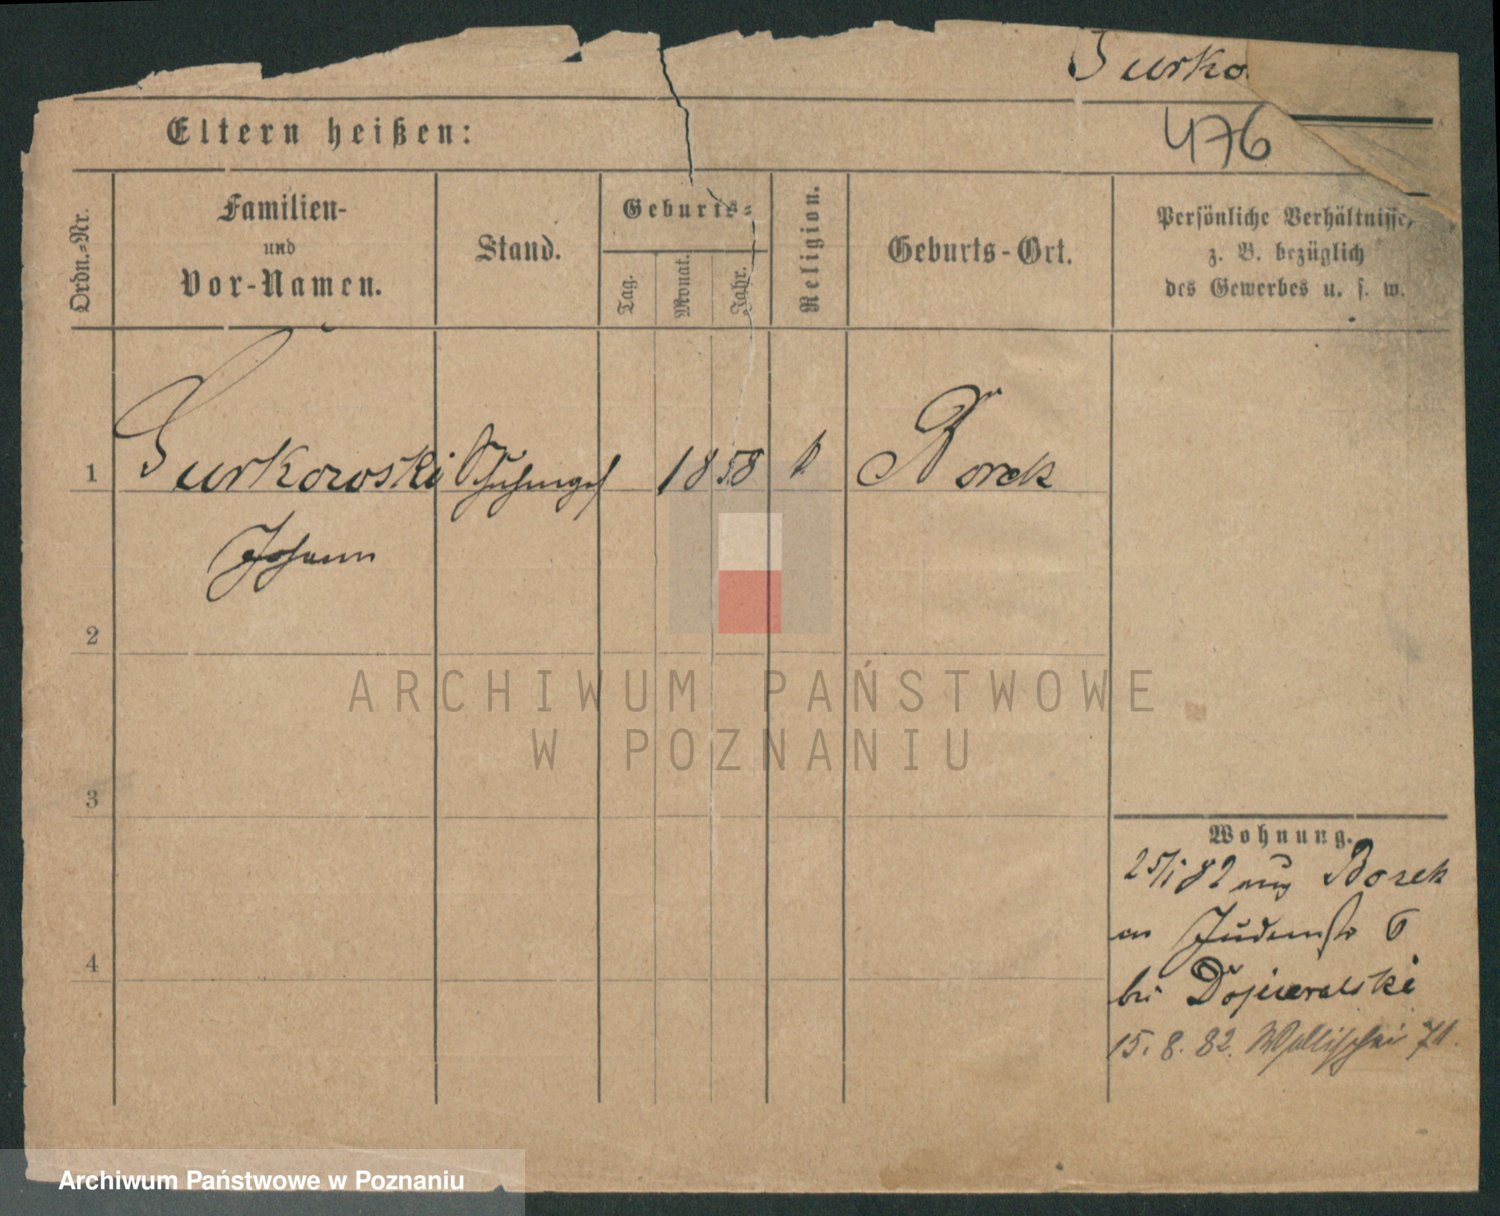 Surko
476
Eltern heißen:
Ordn.-Nr.
Familien-
und
Vor-Namen.
Stand.
Geburts-
Tag.
Monat.
Jahr.
Religion.
Geburts-Ort.
Persönliche Verhältnisse,
z. B. bezüglich
des Gewerbes u. s. w.
1 Surkowski 1858 Borek
Johann
2
3
4
Wohnung.
25/1 82 aus Borek
Judenstr 6
bei
15. 8. 82. Wallischei 71.
ARCHIWUM PAŃSTWOWE
W POZNANIU
Archiwum Państwowe w Poznaniu